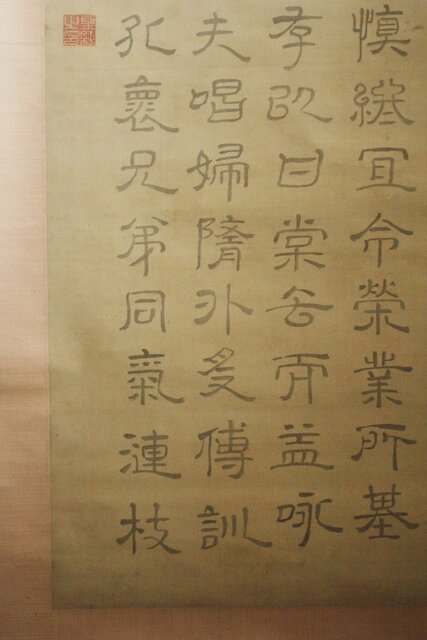 慎終宜令榮業所基
存以甘棠去而益咏
夫唱婦隋外受傅訓
孔褱兄弟同氣漣枝